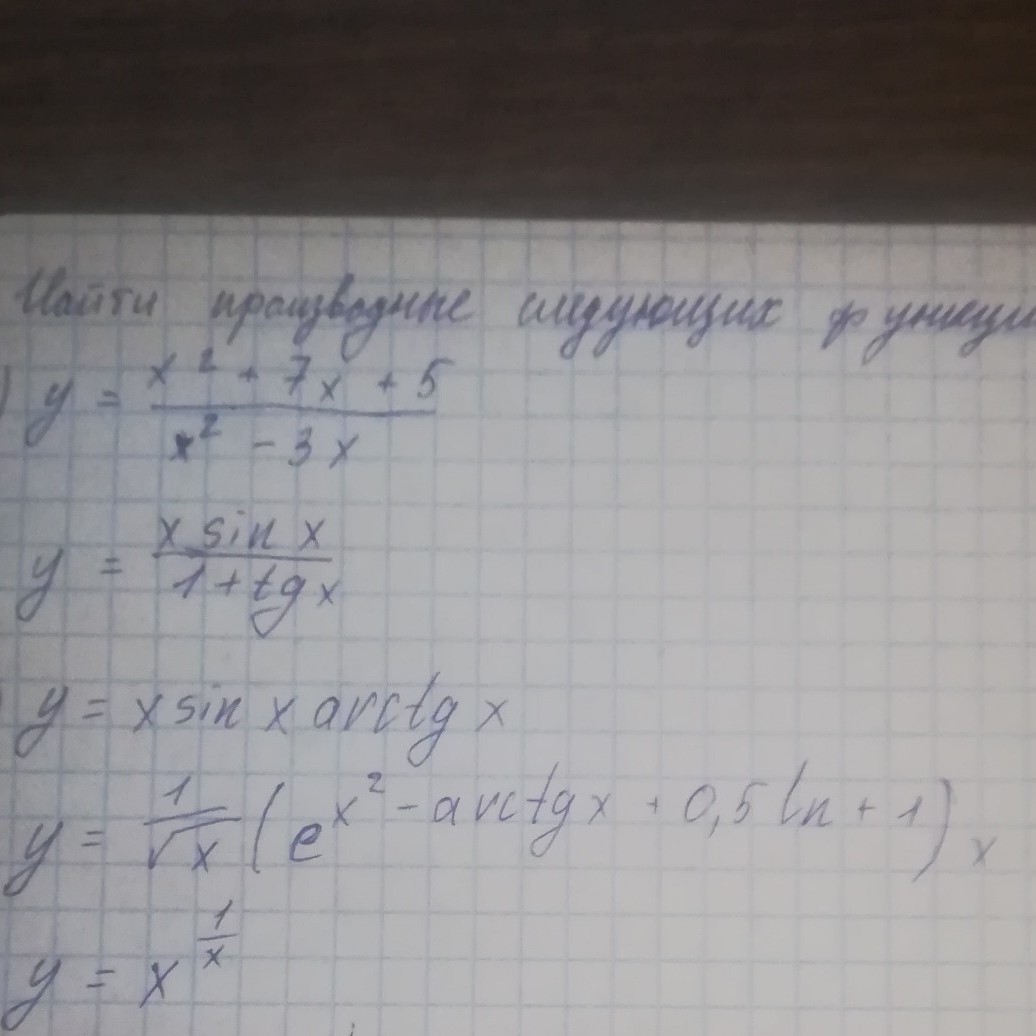 Найти производные следующих функци
) y = (x² + 7x + 5)/(x² - 3x)
y = (x sin x)/(1 + tg x)
) y = x sin x arctg x
y = 1/√x (e^(x² - arctg x + 0,5 ln + 1)) x
y = x^(1/x)